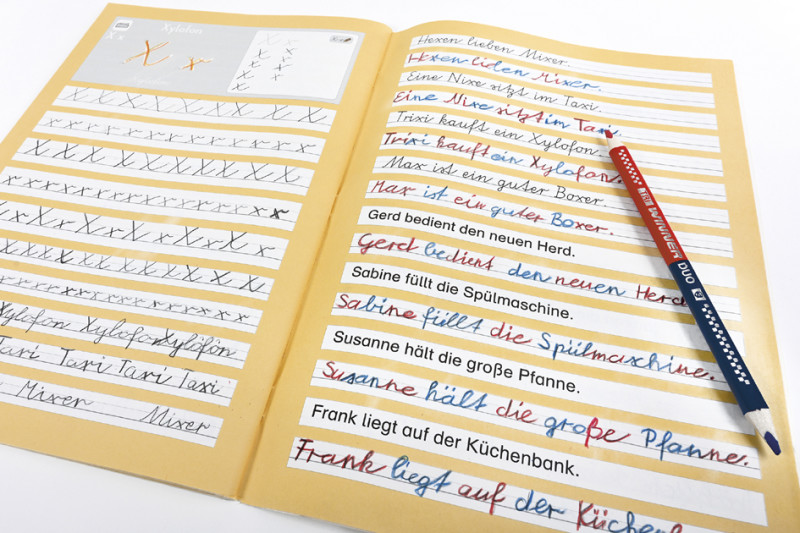 X x
Xylofon
X x
X X X X X X X X X X
x x x x x x x x x x x x x
X X X X X X X X X X
x x x x x x x x x x x x x x
x X x X x X x X x X x X x
X X X X X X X X X X X X
x x x x x x x x x x x x x
Xylofon Xylofon Xylofon
Taxi Taxi Taxi Taxi
Mixer Mixer
Hexen lieben Mixer.
Hexen Mixer.
Eine Nixe sitzt im Taxi.
Eine Nixe sitzt im Taxi.
Trixi kauft ein Xylofon.
Trixi kauft ein Xylofon.
Max ist ein guter Boxer.
Max ist ein guter Boxer.
Gerd bedient den neuen Herd.
Gerd bedient den neuen Herd
Sabine füllt die Spülmaschine.
Sabine füllt die Spülmaschine.
Susanne hält die große Pfanne.
Susanne hält die große Pfanne.
Frank liegt auf der Küchenbank.
Frank liegt auf der Küchenb
TRI WINNER DUO